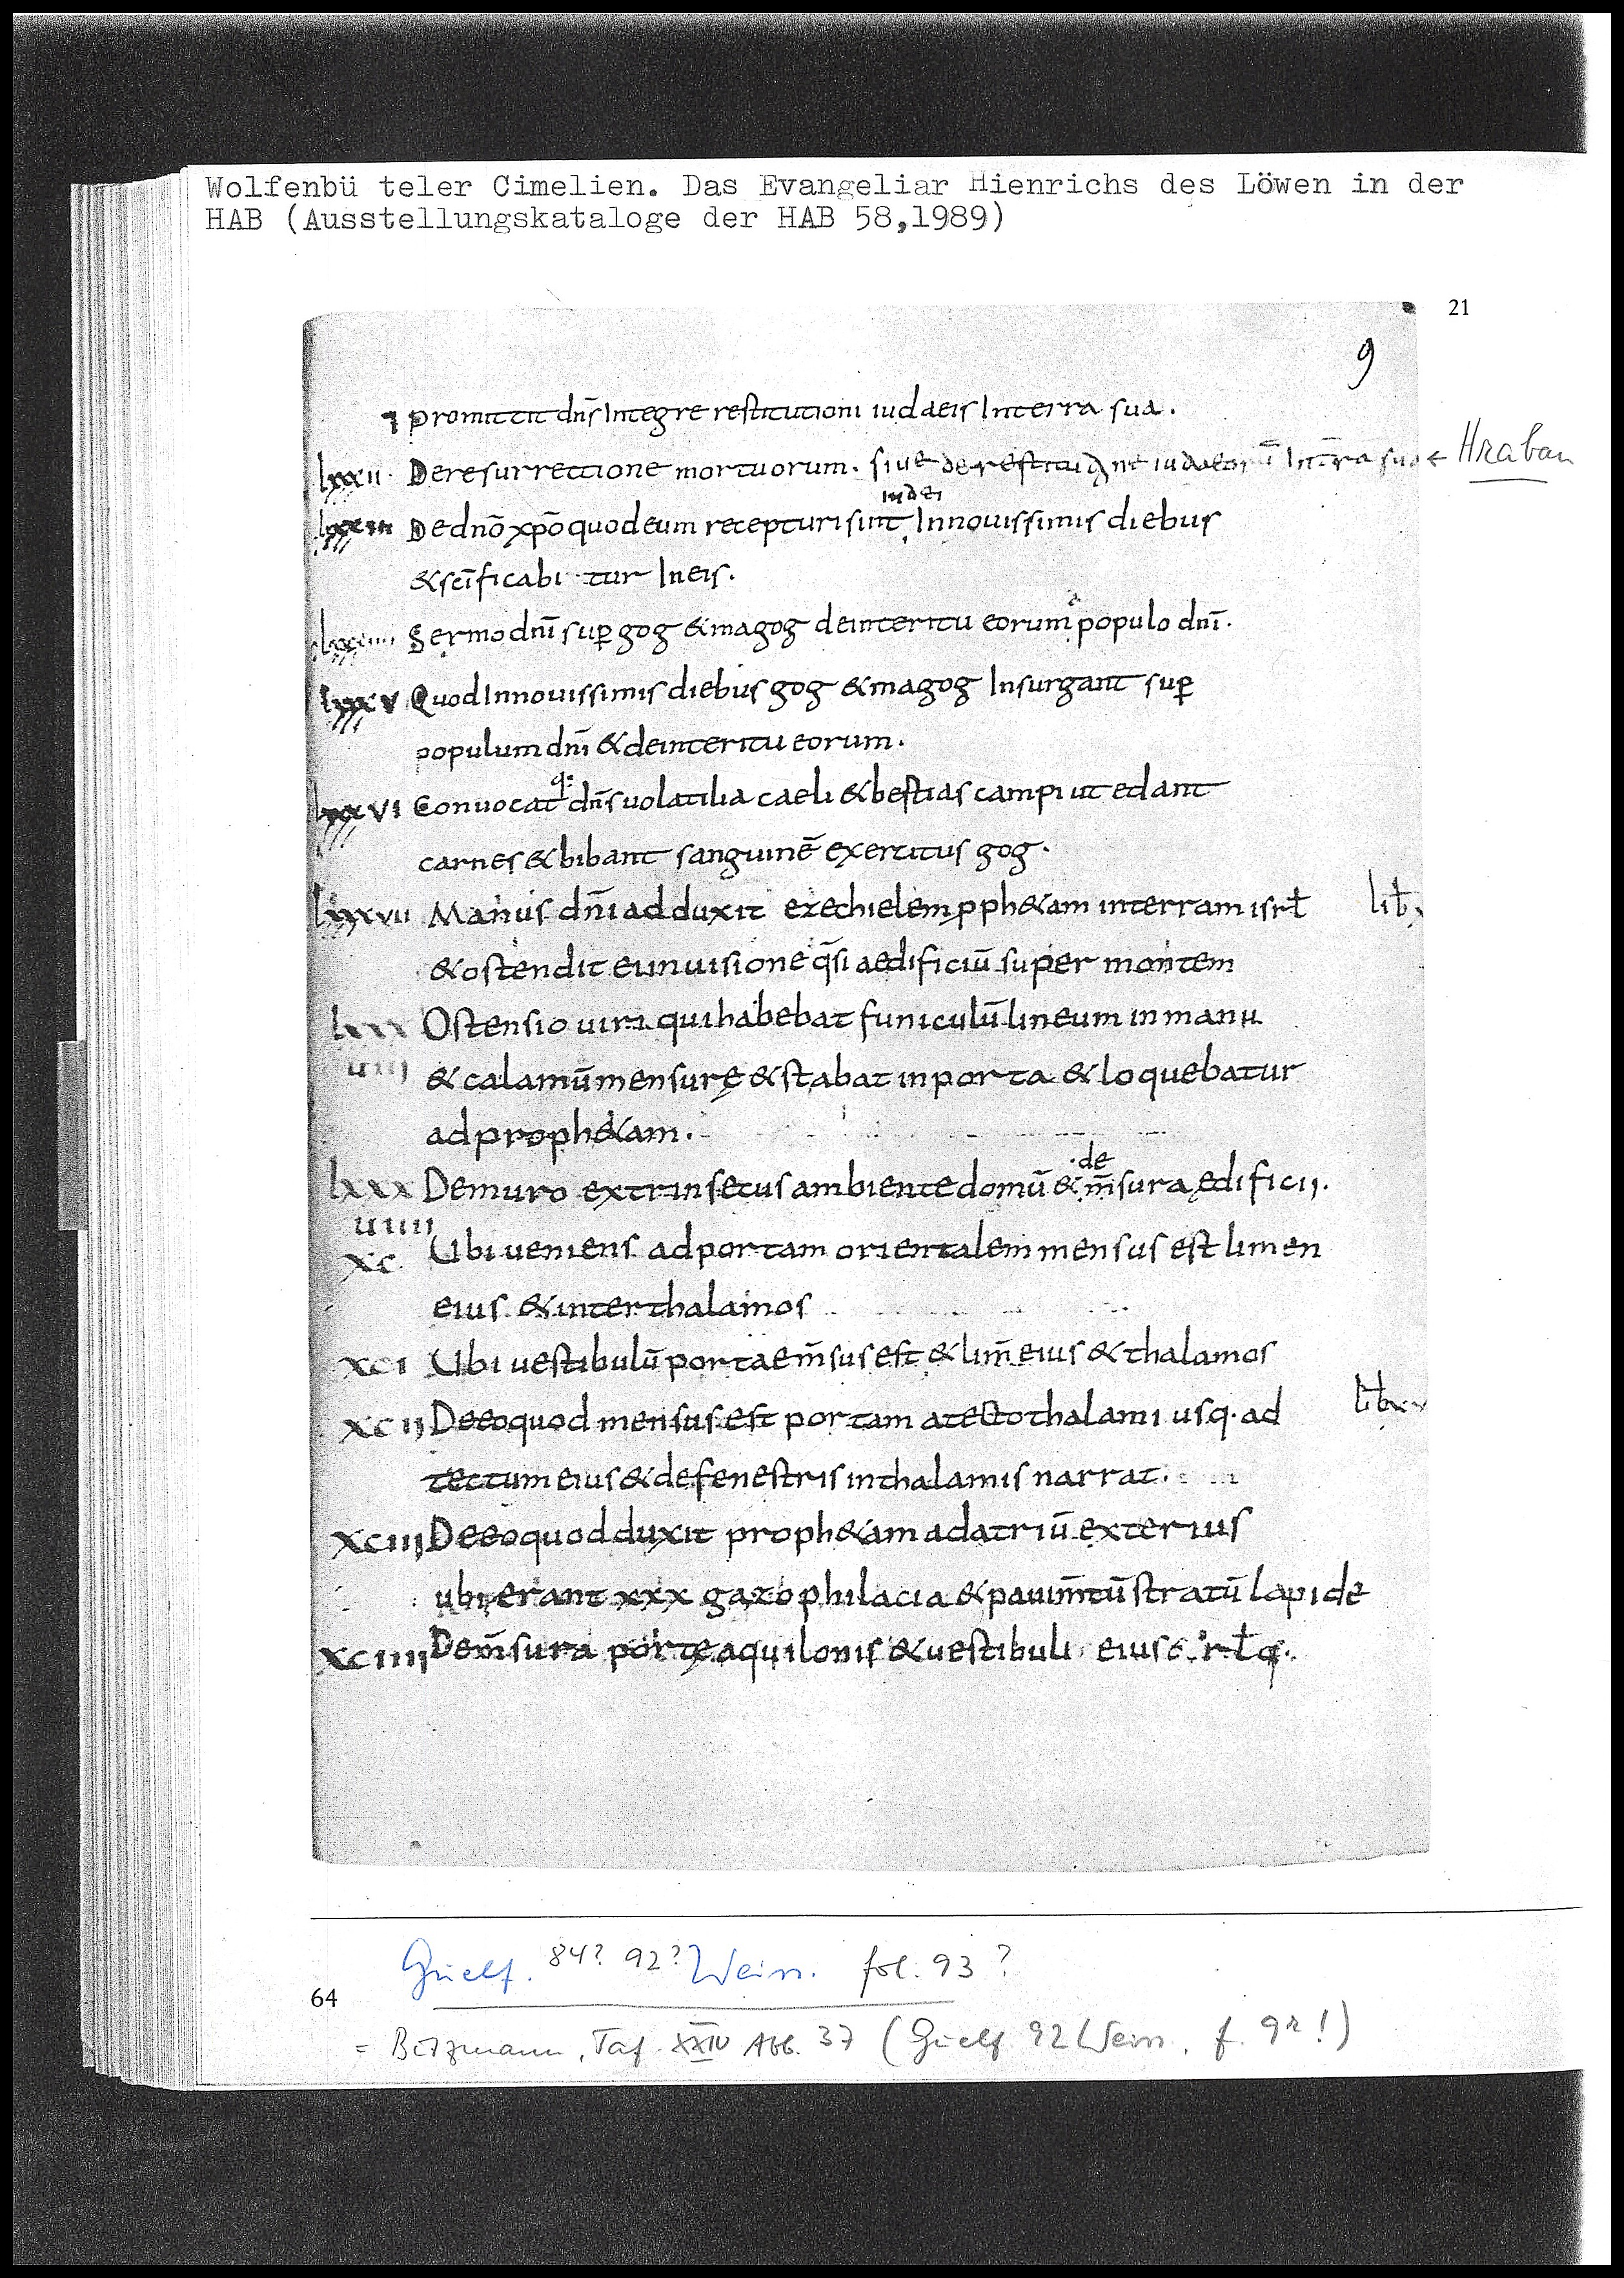 Wolfenbü teler Cimelien. Das Evangeliar Hienrichs des Löwen in der
HAB (Ausstellungskataloge der HAB 58,1989)
21
9
⁊ promittit dn̄s Integre restitutioni iudaeis Interra sua.
lxxii. Deresurrectione mortuorum. siue de restitutione iudaeorū Inter̄ra sua ← Hraban
iudei
lxxxiii Dednō xpō quodeum recepturi sint, Innouissimis diebus
&sc̄ificabi tur Ineis.
a
lxxxiiii Sermo dnī sup̄ gog &magog deinteritu eorum populo dnī.
lxxxv QuodInnouissimis diebus gog &magog Insurgant sup̄
populum dnī &deinteritu eorum.
q:
lxxxvi Conuocat dn̄s uolatilia caeli &bestias campi ut edant
carnes &bibant sanguinē exercitus gog.
lxxxvii Manus dn̄i adduxit ezechielem pph&am interram isrł lib̵
&ostendit ei inuisione q̄si aedificiū super montem
lxxx Ostensio uiri quihabebat funiculū lineum inmanu
uiii &calamū mensurę &stabat inporta &loquebatur
adproph&am.
.de
lxxx Demuro extrinsecus ambiente domū &m̄sura ędificij.
uiiii
xc Ubi ueniens adportam orientalem mensus est limen
eius &inter thalamos
xci Ubi uestibulū portae m̄sus est &lim̄ eius &thalamos
xcij Deeoquod mensus est portam atecto thalami usq. ad
tectum eius &defenestris inthalamis narrat.
xciij Deeoquod duxit proph&am adatriū exterius
ubi erant xxx gazophilacia &pauim̄tū stratū lapide
xciiii Dem̄sura portę aquilonis &uestibuli eius & rłq.
Guelf. 84? 92? Weiss. fol. 93?
64
= Butzmann, Taf. XXIV Abb. 37 (Guelf 92 Weiss. f. 9r!)